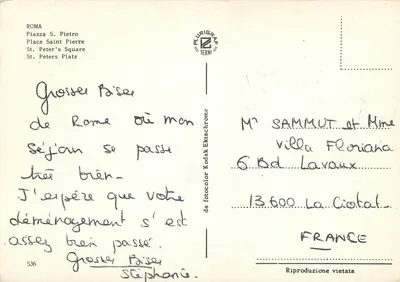 ROMA
Piazza S. Pietro
Place Saint Pierre
St. Peter's Square
St. Peters Platz
Grosses Bises
de Rome où mon
séjour se passe
très bien-
J'espère que votre
déménagement s'est
assez bien passé.
Grosses Bises
Stéphanie.
536
PLURIGRAF
TERNI
da fotocolor Kodak Ektachrome
Mr SAMMUT et Mme
Villa Floriana
6 Bd Lavaux
13600 La Ciotat
FRANCE
Riproduzione vietata